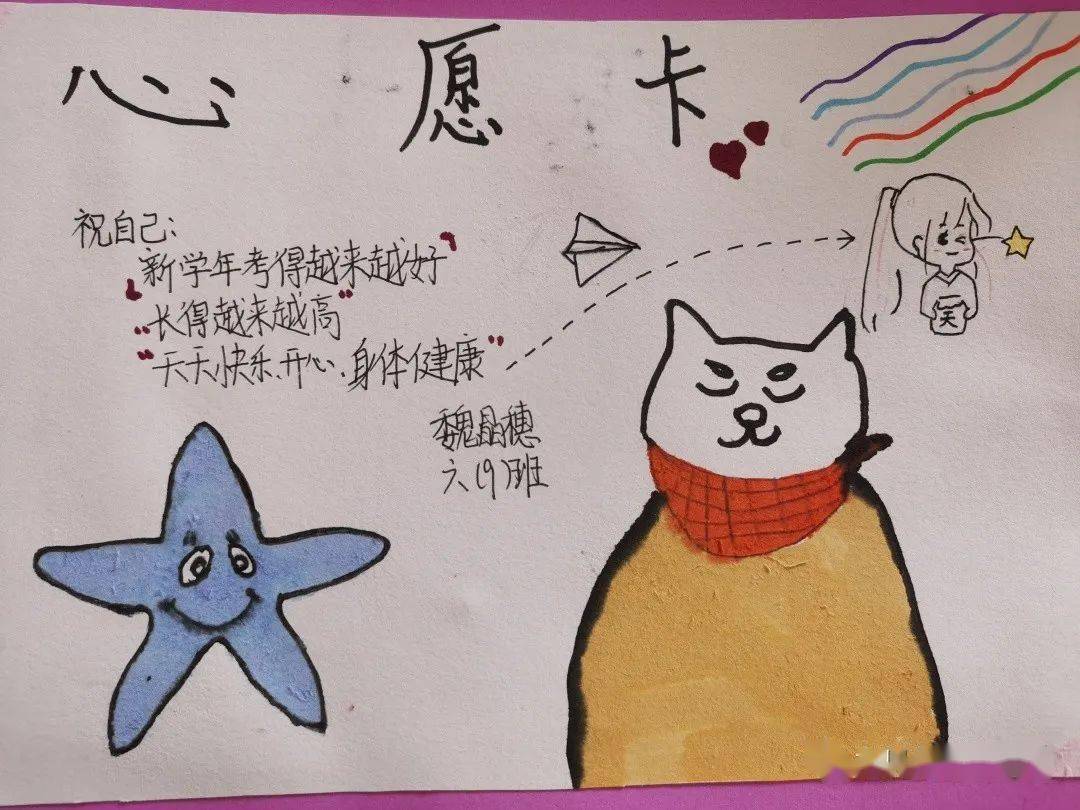 心愿卡
祝自己:
新学年考得越来越好"
"长得越来越高"
"天天快乐、开心、身体健康"
魏晶穗
六(9)班
笑